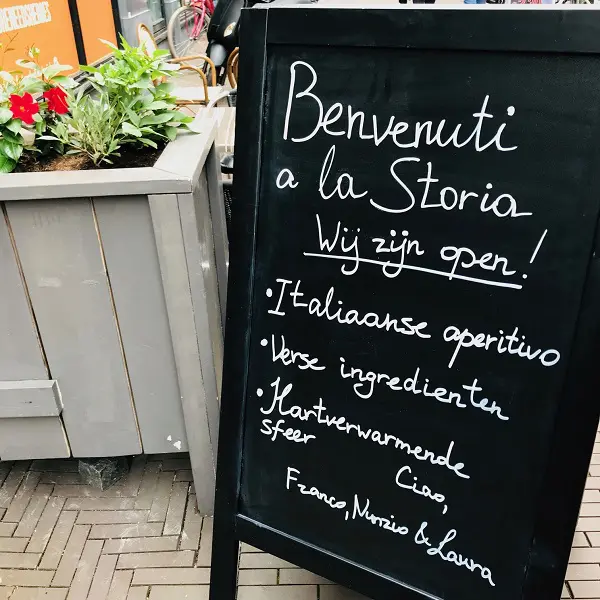 Benvenuti
a la Storia
Wij zijn open!
• Italiaanse aperitivo
• Verse ingredienten
• Hartverwarmende
sfeer
Ciao,
Franco, Nunzio & Laura